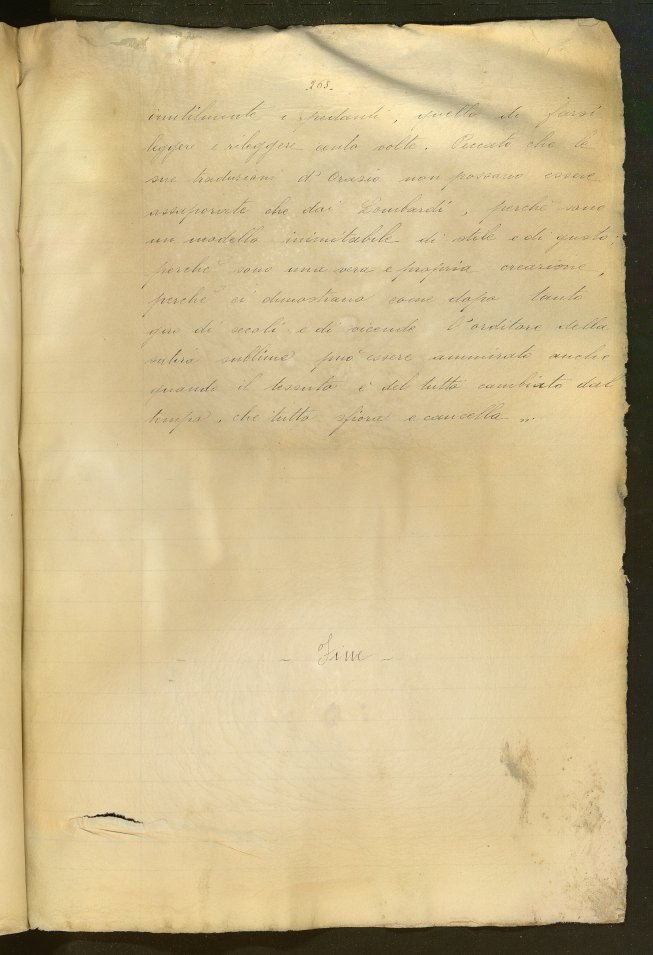 265.
inutilmente i pedanti, quello di farsi
leggere e rileggere cento volte. Peccato che le
sue traduzioni d'Orazio non possano essere
assaporate che dai Lombardi, perchè sono
un modello inimitabile di stile e di gusto;
perchè sono una vera e propria creazione,
perchè ci dimostrano come dopo tanto
giro di secoli e di vicende l'orditore della
satira sublime può essere ammirato anche
quando il tessuto è del tutto cambiato dal
tempo, che tutto sfiora e cancella „.
- Fine -